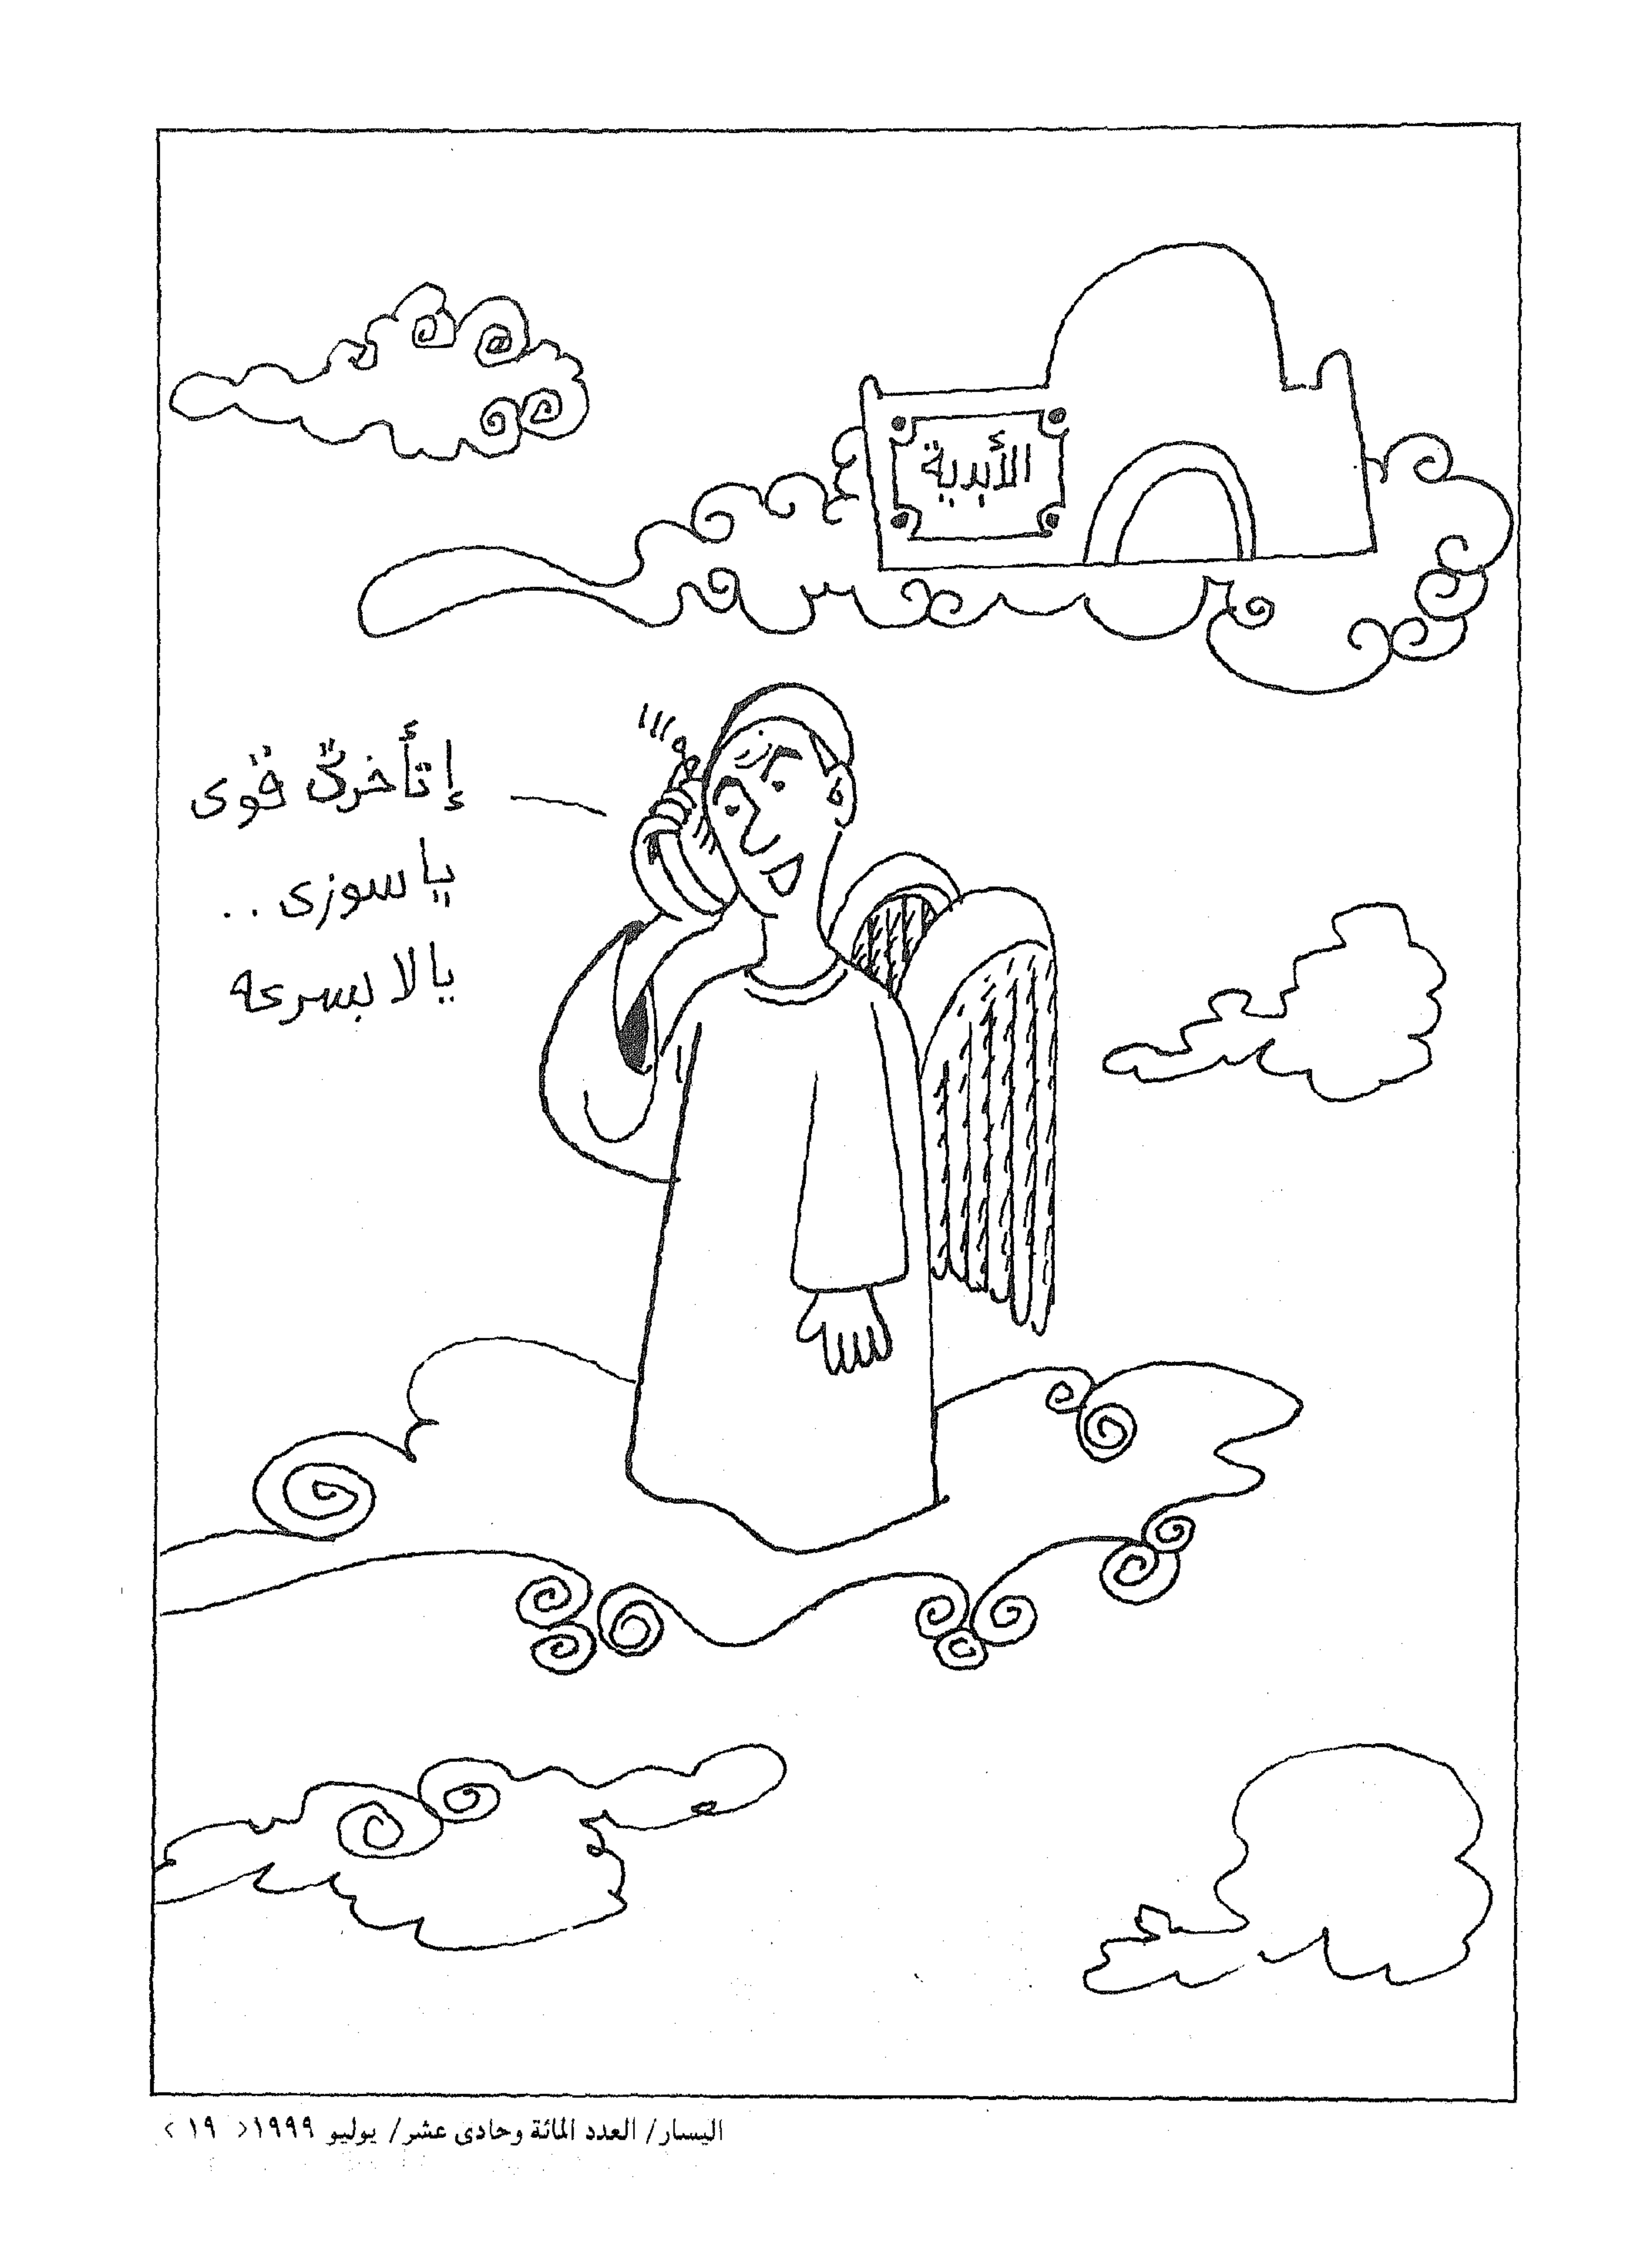 الأبدية
إتأخرتى قوى
يا سوزى ..
يا لا بسرعه
اليسار/ العدد المائة وحادى عشر/ يوليو ١٩٩٩< ١٩ >